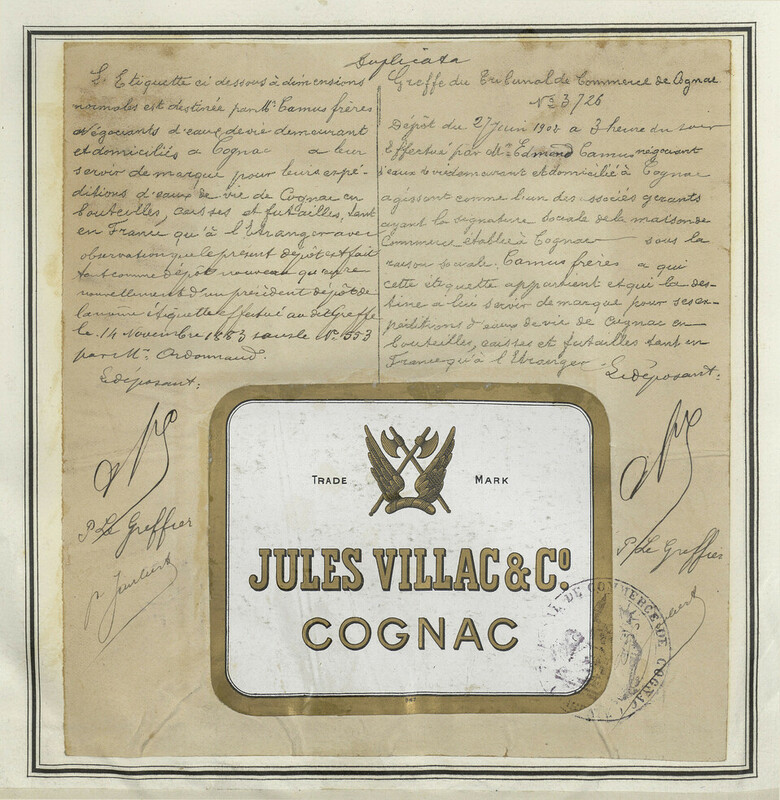 Duplicata
L'Etiquette ci dessous à dimensions
normales est destinée par Mrs Camus frères
négociants d'eaux de vie demeurant
et domiciliés à Cognac à leur
servir de marque pour leurs expé-
ditions d'eaux de vie de Cognac en
bouteilles, caisses et futailles, tant
en France qu'à l'Etranger avec
observation que le présent dépôt est fait
tant comme dépôt nouveau qu'en re
nouvellement d'un précédent dépôt de
la même étiquette effectué au dit greffe
le 14 Novembre 1883 sous le No 553
par Mr Ordonnaud.
Le déposant:
P Le Greffier
Greffe du Tribunal de Commerce de Cognac
No 3726
Dépôt du 27 Juin 1902 à 3 heure du soir
Effectué par Mr Edmond Camus négociant
d'eaux de vie demeurant et domicilié à Cognac
agissant comme l'un des associés gérants
ayant la signature sociale de la maison de
Commerce établie à Cognac sous la
raison sociale. Camus frères à qui
cette étiquette appartient et qui la des-
tine à lui servir de marque pour ses ex-
péditions d'eaux de vie de Cognac en
bouteilles, caisses et futailles tant en
France qu'à l'Etranger
Le déposant:
P Le Greffier
TRADE MARK
JULES VILLAC & Co
COGNAC
TRIBUNAL DE COMMERCE DE COGNAC